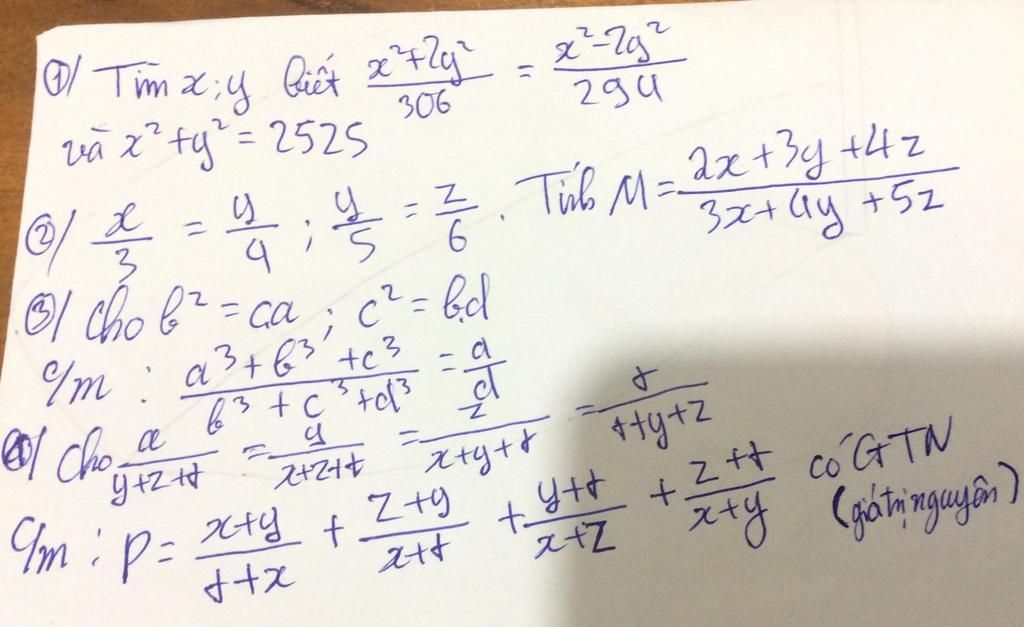 1/ Tìm x; y biết (x²+2y²)/306 = (x²-2y²)/294
và x²+y² = 2525
2/ x/3 = y/4 ; y/5 = z/6 . Tính M = (2x+3y+4z)/(3x+4y+5z)
3/ Cho b² = c.a ; c² = b.d
c/m : (a³+b³+c³)/(b³+c³+d³) = a/d
4/ Cho x/(y+z+t) = y/(x+z+t) = z/(x+y+t) = t/(x+y+z)
c/m : P = (x+y)/(t+x) + (z+y)/(x+t) + (y+t)/(x+z) + (z+t)/(x+y) có GTN
(giá trị nguyên)